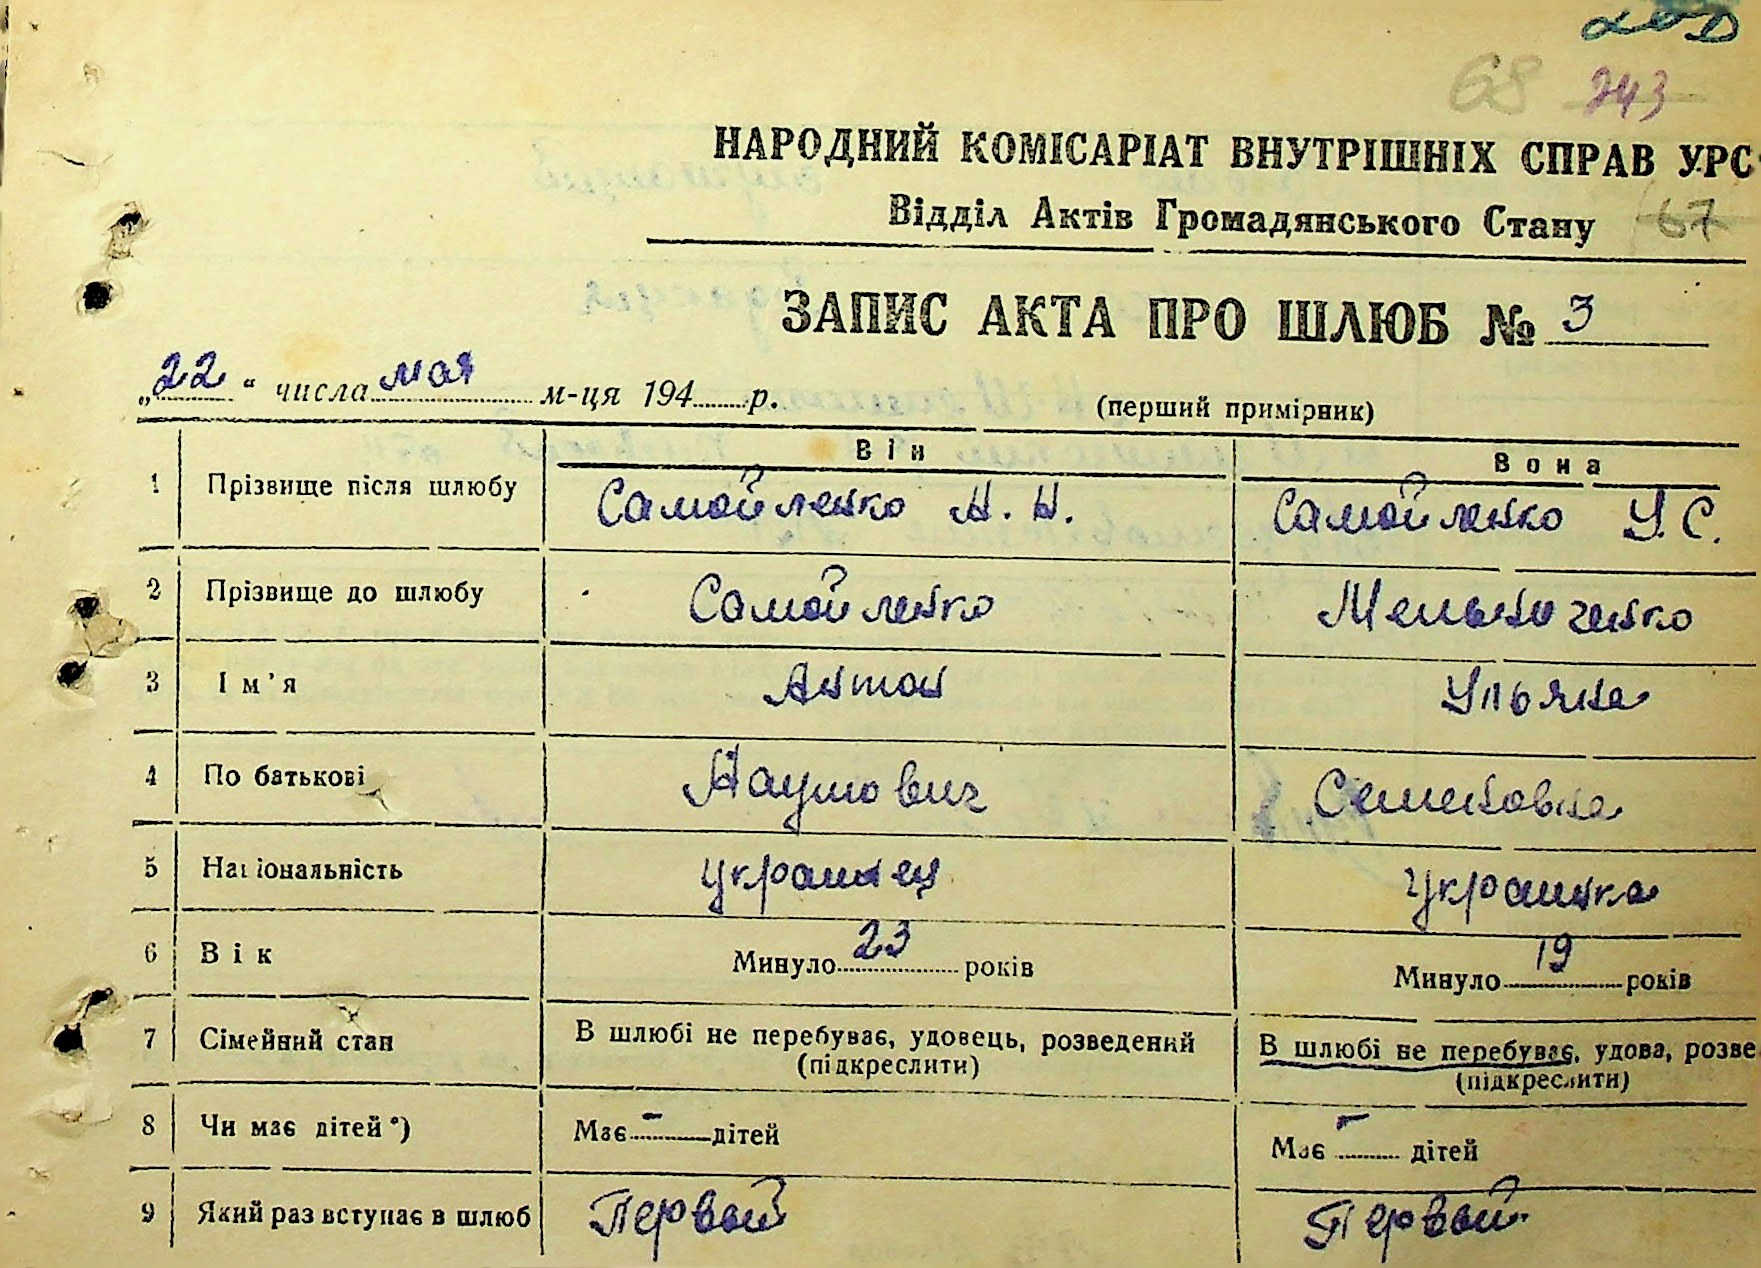 68 243
НАРОДНИЙ КОМІСАРІАТ ВНУТРІШНІХ СПРАВ УРС
Відділ Актів Громадянського Стану 67
ЗАПИС АКТА ПРО ШЛЮБ № 3
„22“ числа мая м-ця 194 р. (перший примірник)
Він Вона
1 Прізвище після шлюбу Самойленко А. Н. Самойленко У. С.
2 Прізвище до шлюбу Самойленко Мельниченко
3 Ім’я Антон Ульяна
4 По батькові Наумович Семеновна
5 Національність украинец украинка
6 Вік Минуло 23 років Минуло 19 років
7 Сімейний стан В шлюбі не перебуває, удовець, розведений (підкреслити) В шлюбі не перебуває, удова, розве (підкреслити)
8 Чи має дітей*) Має – дітей Має – дітей
9 Який раз вступає в шлюб Первый Первый